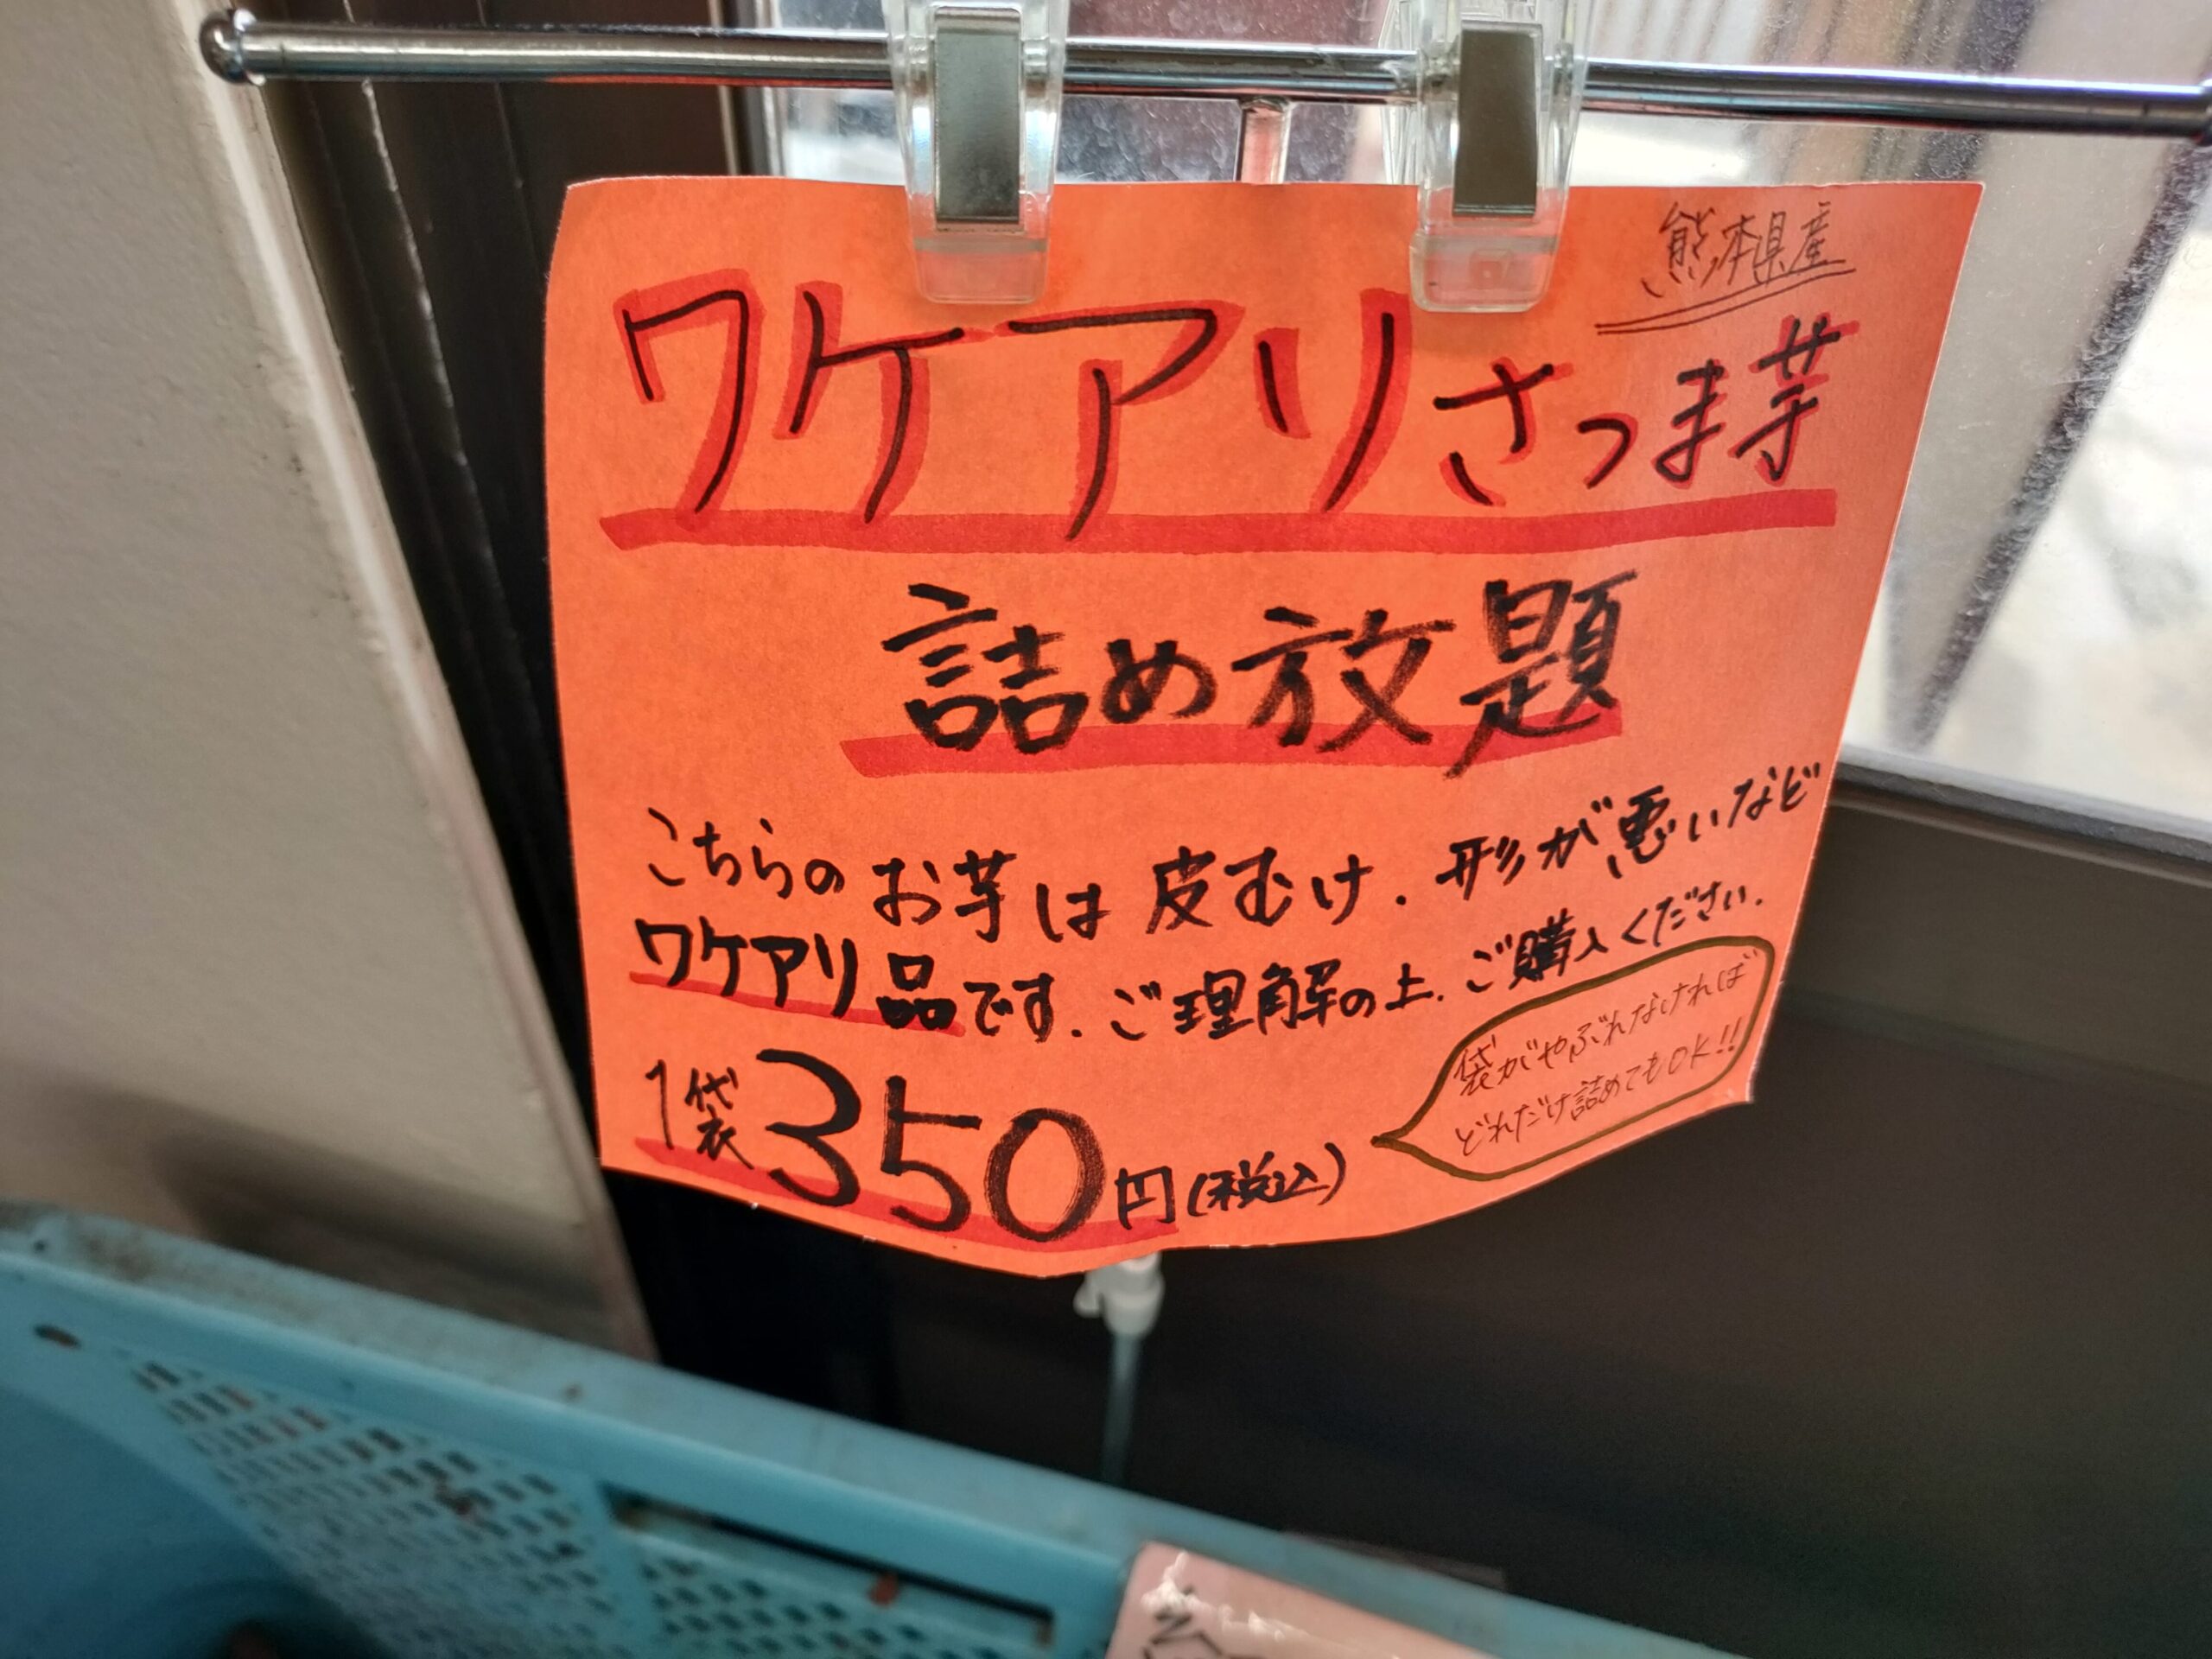 熊本県産
ワケアリさつま芋
詰め放題
こちらのお芋は皮むけ.形が悪いなど
ワケアリ品です.ご理解の上.ご購入ください.
1袋350円(税込)
袋がやぶれなければ
どれだけ詰めてもOK!!